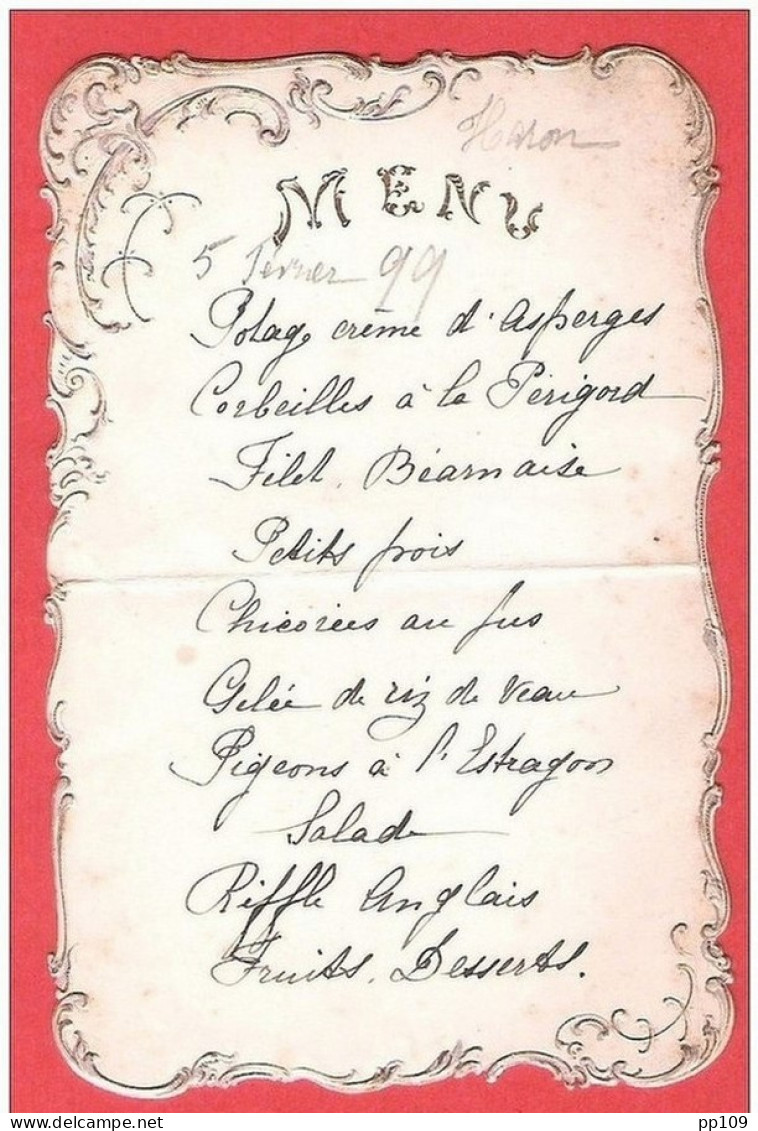 Haron
MENU
5 fevrier 99
Potage crème d'Asperges
Corbeilles à la Périgord
Filet Béarnaise
Petits pois
Chicorées au jus
Gelée de riz de Veau
Pigeons à l'Estragon
Salade
Riffle Anglais
Fruits. Desserts.
pp109